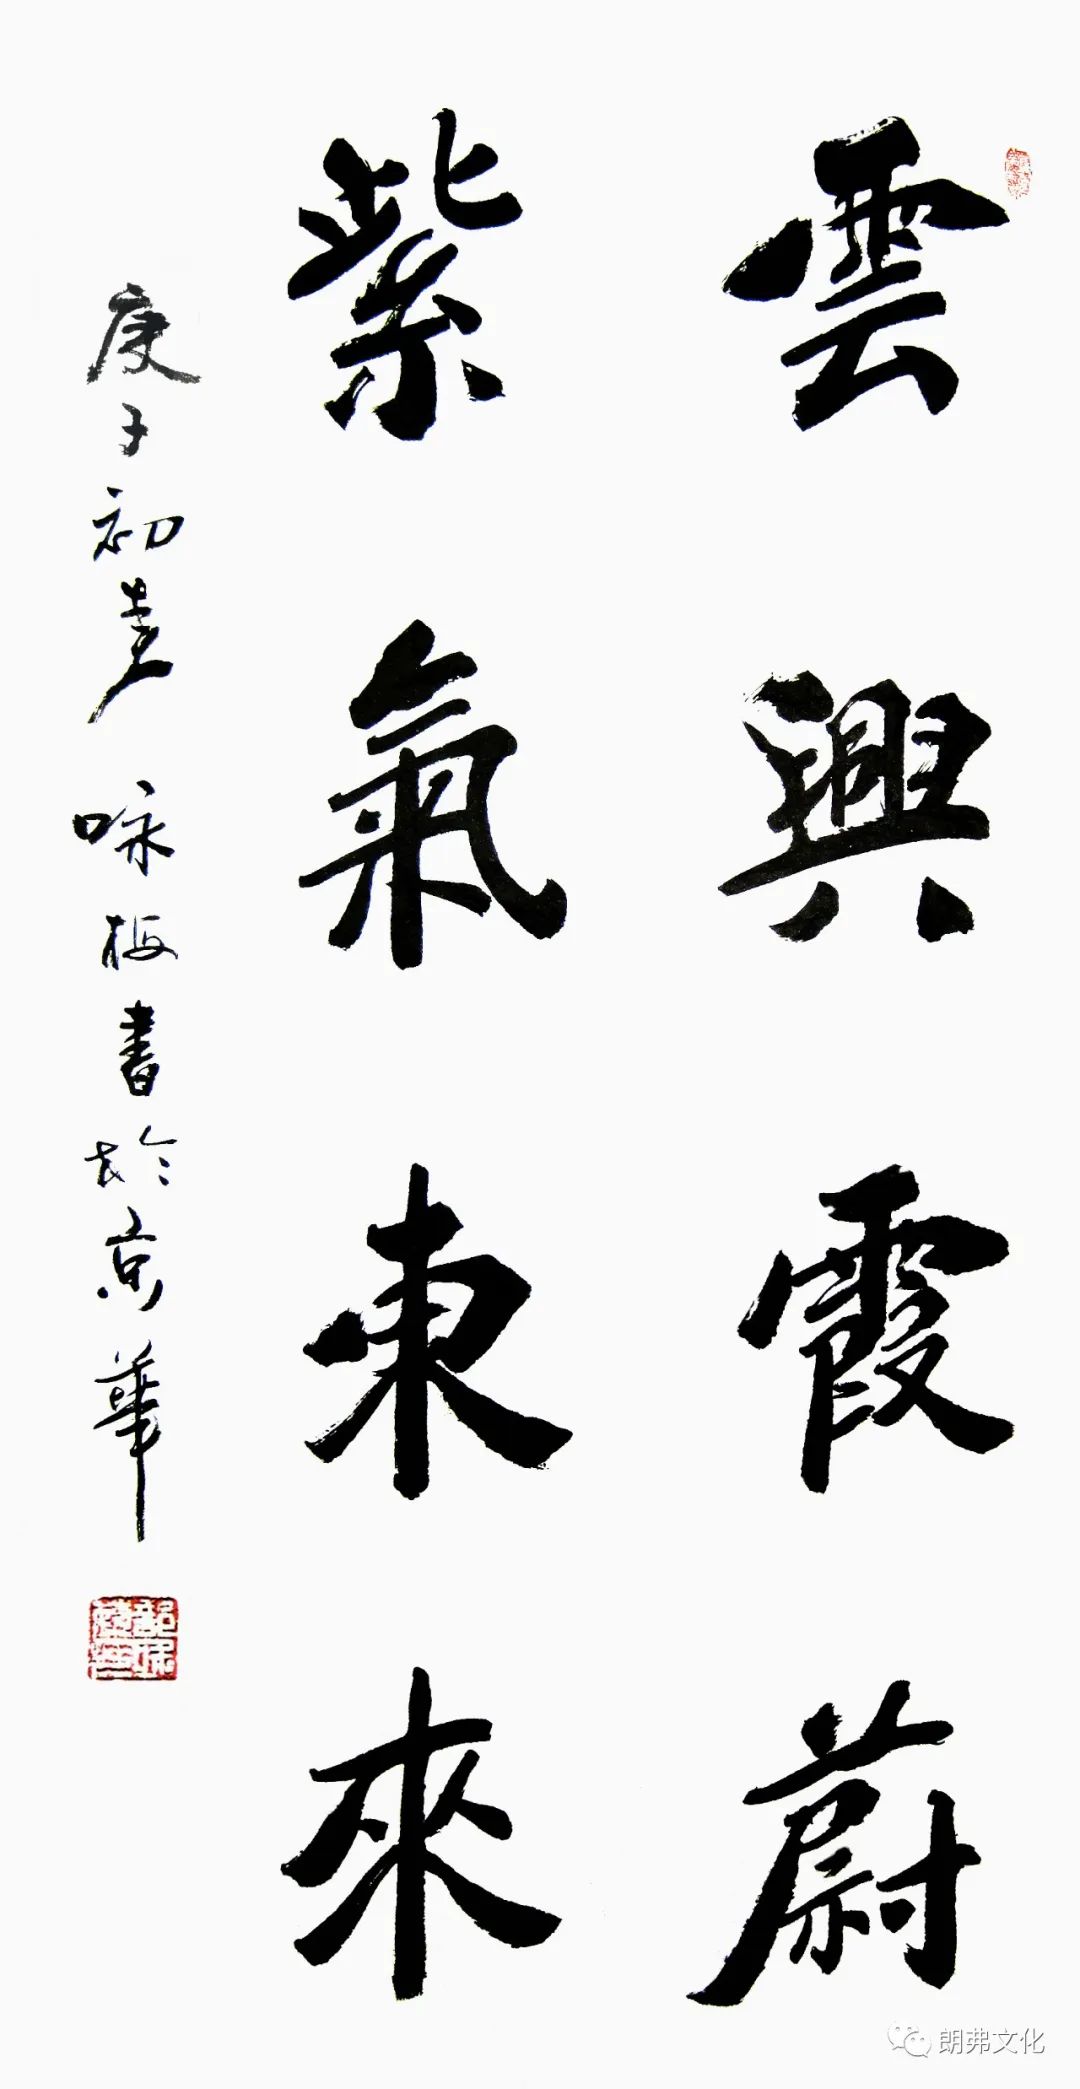 雲興霞蔚
紫氣東來
庚子初春 咏梅書於京華
朗弗文化